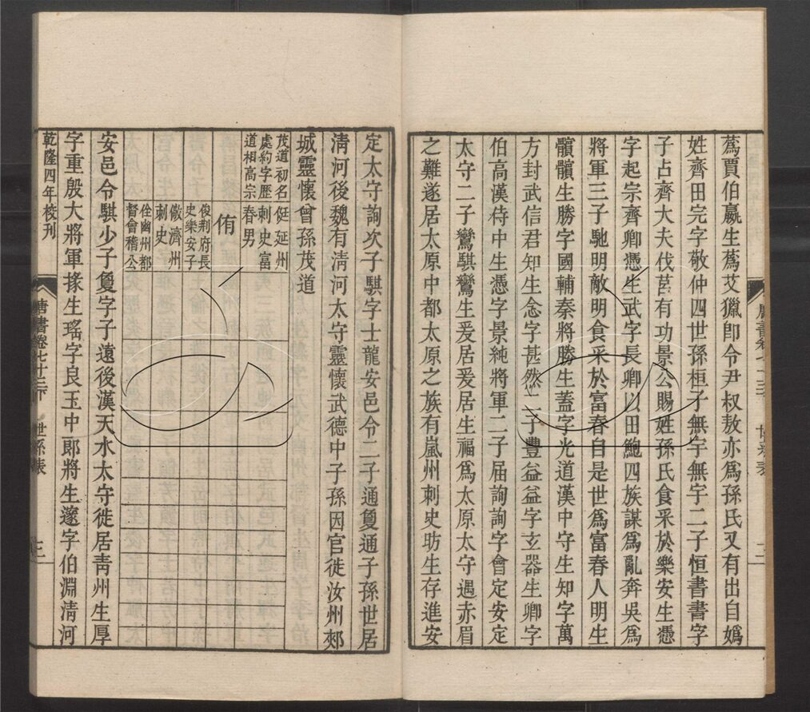 蔿賈伯嬴生蔿艾獵卽令尹叔敖亦爲孫氏又有出自嬀
姓齊田完字敬仲四世孫桓子無宇無宇二子恒書書字
子占齊大夫伐莒有功景公賜姓孫氏食采於樂安生憑
字起宗齊卿憑生武字長卿以田鮑四族謀爲亂奔吳爲
將軍三子馳明敵明食采於富春自是世爲富春人明生
髕髕生勝字國輔秦將勝生蓋字光道漢中守生知字萬
方封武信君知生念字甚然二子豐益益字玄器生卿字
伯高漢侍中生憑字景純將軍二子屆詢詢字會定安定
太守二子鸞騏鸞生爰居爰居生福爲太原太守遇赤眉
之難遂居太原中都太原之族有嵐州刺史昉生存進安
定太守詢次子騏字士龍安邑令二子通夐通子孫世居
淸河後魏有淸河太守靈懷武德中子孫因官徙汝州郟
城靈懷曾孫茂道
茂道初名
處約字歷
道相高宗
侹延州
刺史富
春男
侑
俊荆府長
史樂安子
儆濟州
刺史
佺幽州都
督會稽公
安邑令騏少子夐字子遠後漢天水太守徙居青州生厚
字重殷大將軍掾生瑤字良玉中郎將生邃字伯淵淸河
乾隆四年校刊
唐書卷七十三下
世系表
三